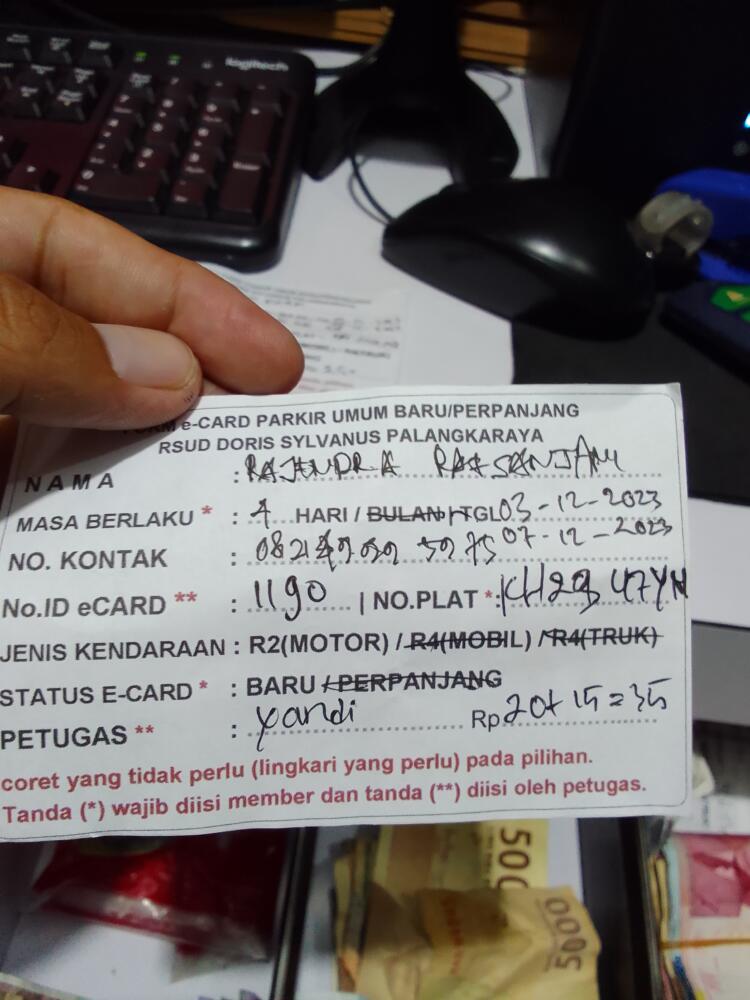 logitech
FORM e-CARD PARKIR UMUM BARU/PERPANJANG
RSUD DORIS SYLVANUS PALANGKARAYA
NAMA : RAJENDRA RAFSANJANI
MASA BERLAKU * : 4 HARI / BULAN / TGL 03-12-2023
07-12-2023
NO. KONTAK :
No.ID eCARD ** : 1190 | NO.PLAT *:
JENIS KENDARAAN : R2(MOTOR) / R4(MOBIL) / R4(TRUK)
STATUS E-CARD * : BARU / PERPANJANG
PETUGAS ** : yandi Rp 20+15=35
coret yang tidak perlu (lingkari yang perlu) pada pilihan.
Tanda (*) wajib diisi member dan tanda (**) diisi oleh petugas.
500
5000